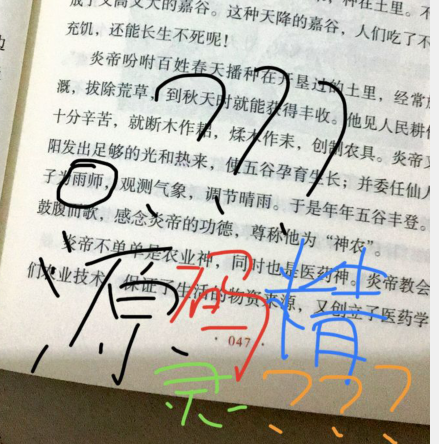 种在土里。
成了又高又大的嘉谷。这种天降的嘉谷，人们吃了不
充饥，还能长生不死呢！
炎帝吩咐百姓春天播种在开垦过的土里，经常
溉，拔除荒草，到秋天时就能获得丰收。他见人民耕
十分辛苦，就断木作耜，煣木作耒，创制农具。炎帝又
阳发出足够的光和热来，使五谷孕育生长；并委任仙人
子为雨师，观测气象，调节晴雨。于是年年五谷丰登。
鼓腹而歌，感念炎帝的功德，尊称他为“神农”。
炎帝不单单是农业神，同时也是医药神。炎帝教会
们农业技术，保证了生活的物资来源，又创立了医药学
· 047 ·
???
原 情
???